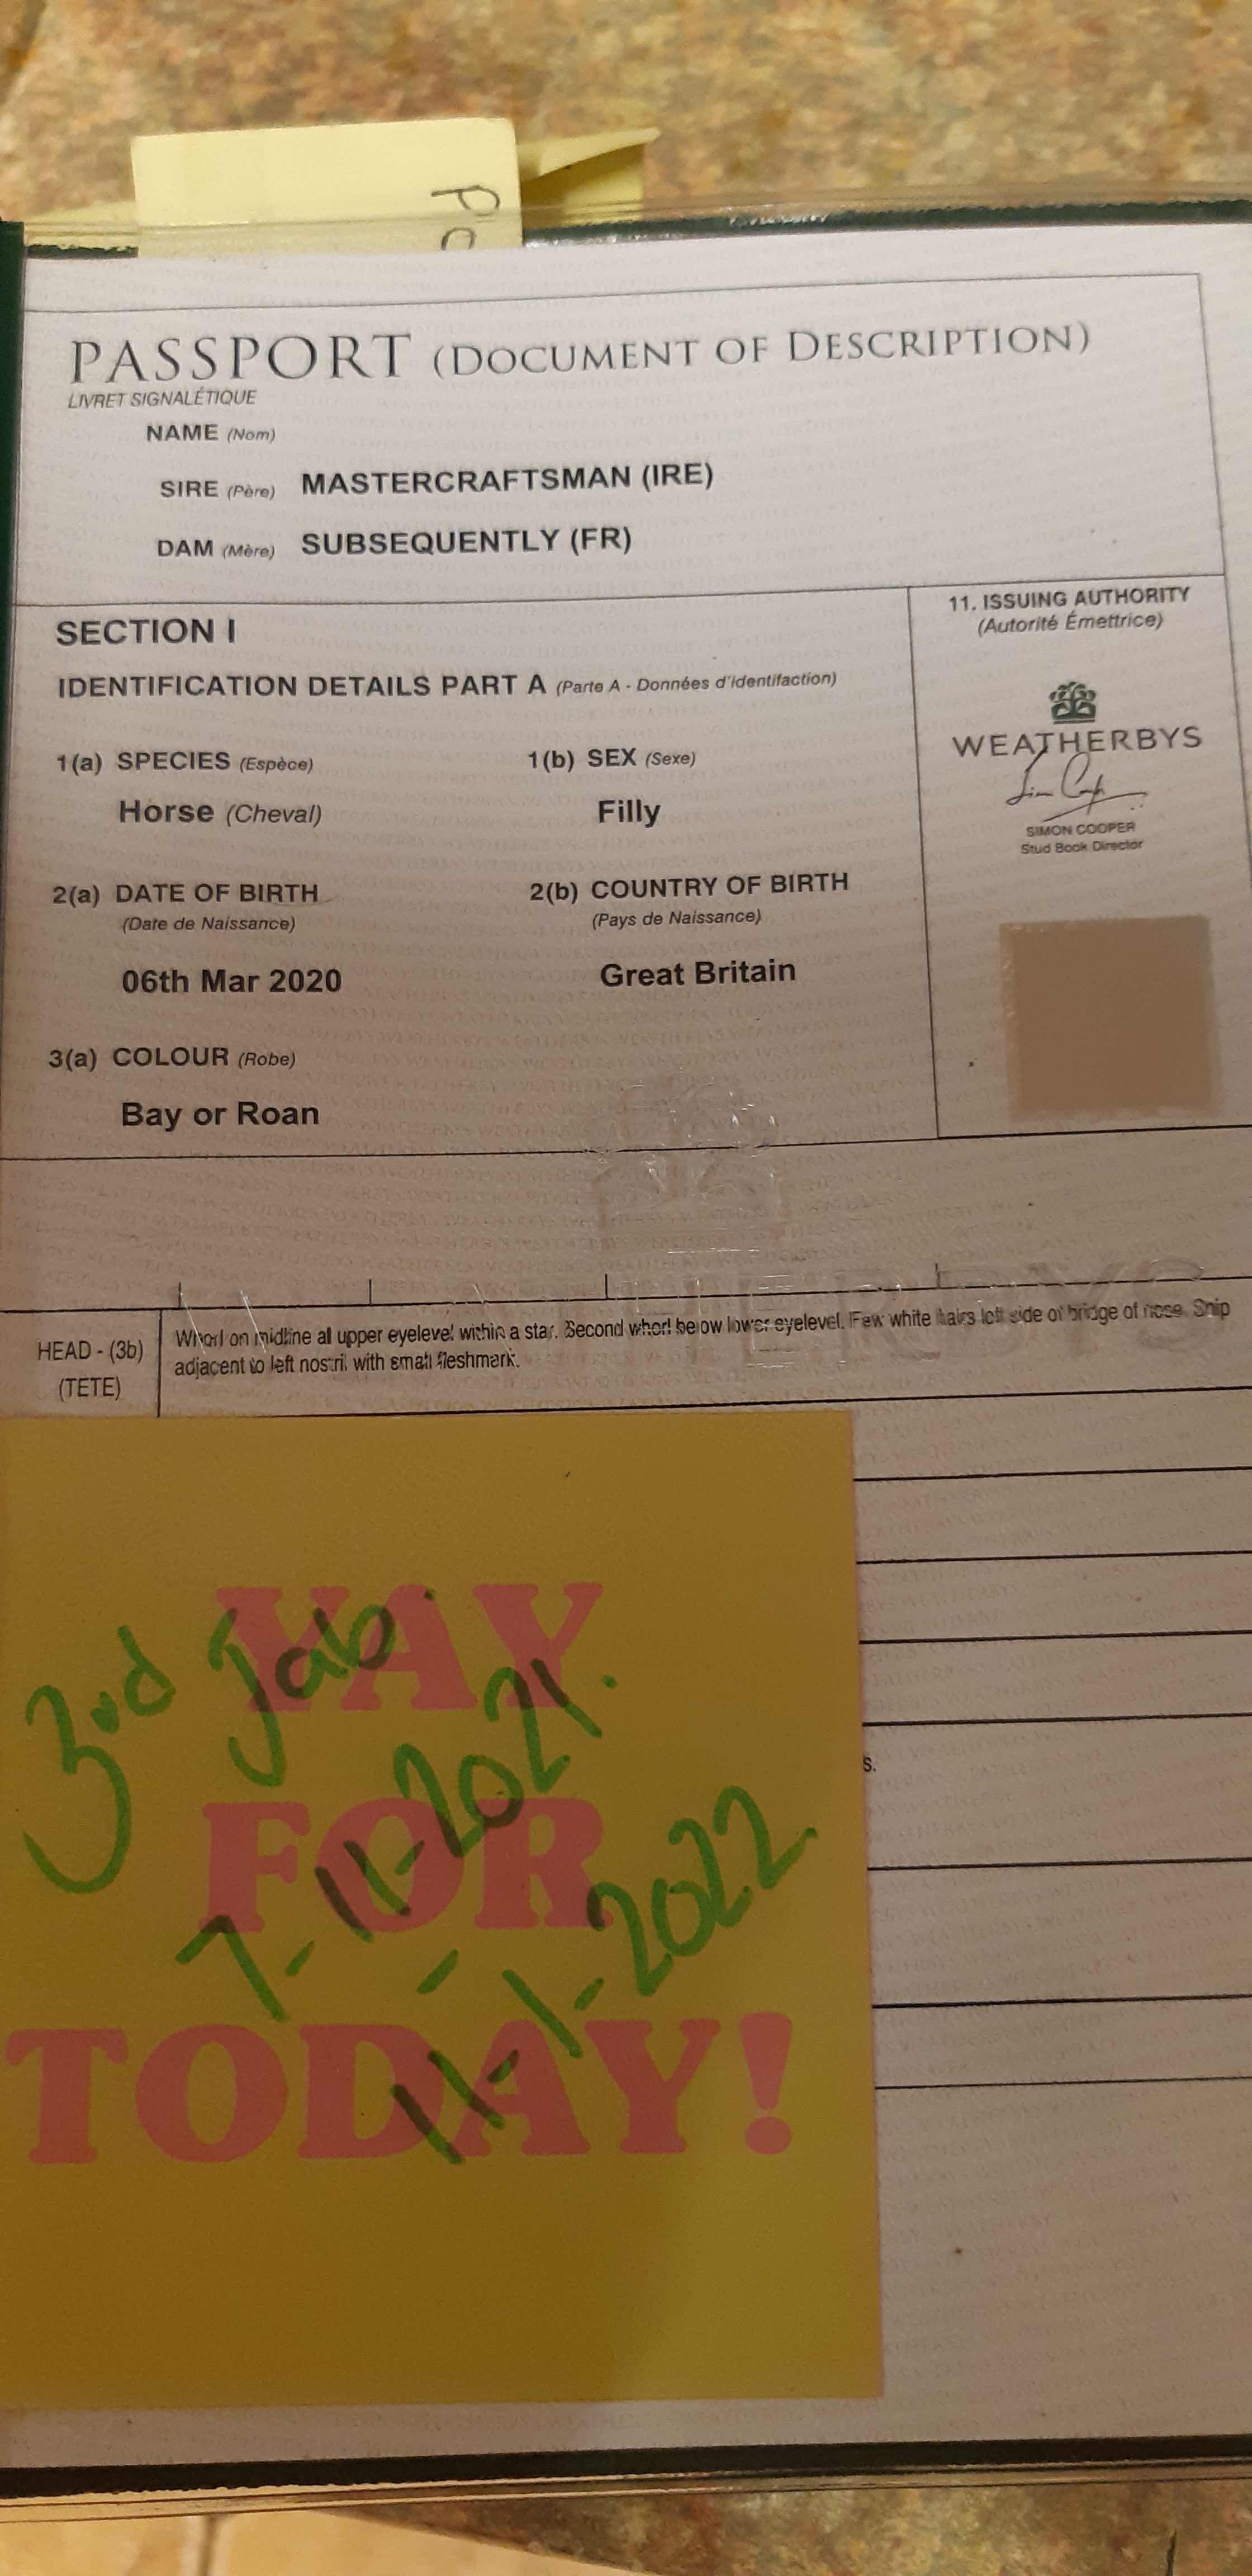 PO
PASSPORT (DOCUMENT OF DESCRIPTION)
LIVRET SIGNALÉTIQUE
NAME (Nom)
SIRE (Père) MASTERCRAFTSMAN (IRE)
DAM (Mère) SUBSEQUENTLY (FR)
SECTION I
IDENTIFICATION DETAILS PART A (Parte A - Données d'identifaction)
1(a) SPECIES (Espèce) 1(b) SEX (Sexe)
Horse (Cheval) Filly
2(a) DATE OF BIRTH 2(b) COUNTRY OF BIRTH
(Date de Naissance) (Pays de Naissance)
06th Mar 2020 Great Britain
3(a) COLOUR (Robe)
Bay or Roan
11. ISSUING AUTHORITY
(Autorité Émettrice)
WEATHERBYS
SIMON COOPER
Stud Book Director
HEAD - (3b)
(TETE)
Whorl on midline at upper eyelevel within a star. Second whorl below lower eyelevel. Few white hairs left side of bridge of nose. Snip
adjacent to left nostril with small fleshmark.
s.
YAY
FOR
TODAY!
3rd Jab.
7-11-2021.
- 11-1-2022.